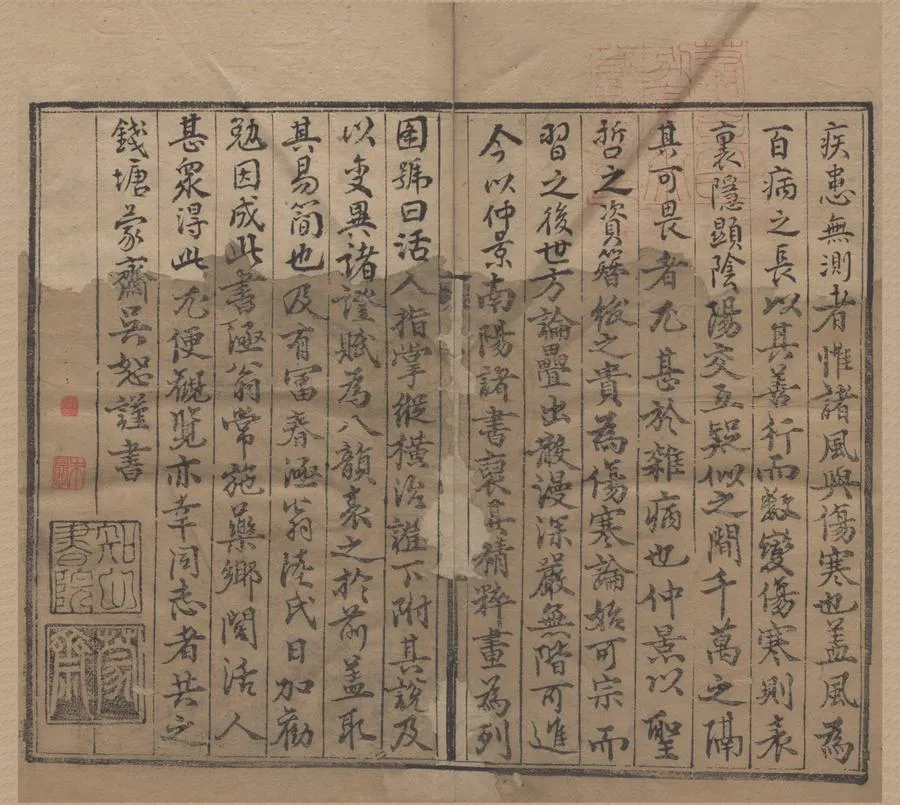 疾患無測者惟諸風與傷寒也盖風為
百病之長以其善行而數變傷寒則表
裏隱顯陰陽交互疑似之間千萬之隔
其可畏者尤甚於雜病也仲景以聖
哲之資簪紱之貴為傷寒論始可宗而
習之後世方論疊出散漫深嚴無階可進
今以仲景南陽諸書裒其精粹畫為列
圖號曰活人指掌縱橫治證下附其說及
以變異諸證賦為八韻表之於前盖取
其易簡也及有富春極翁陸氏日加勸
勉因成此書極翁常施藥鄉閭活人
甚眾得此尤便觀覽亦幸同志者共之
錢塘蒙齋吳恕謹書
知山書院
蒙齋